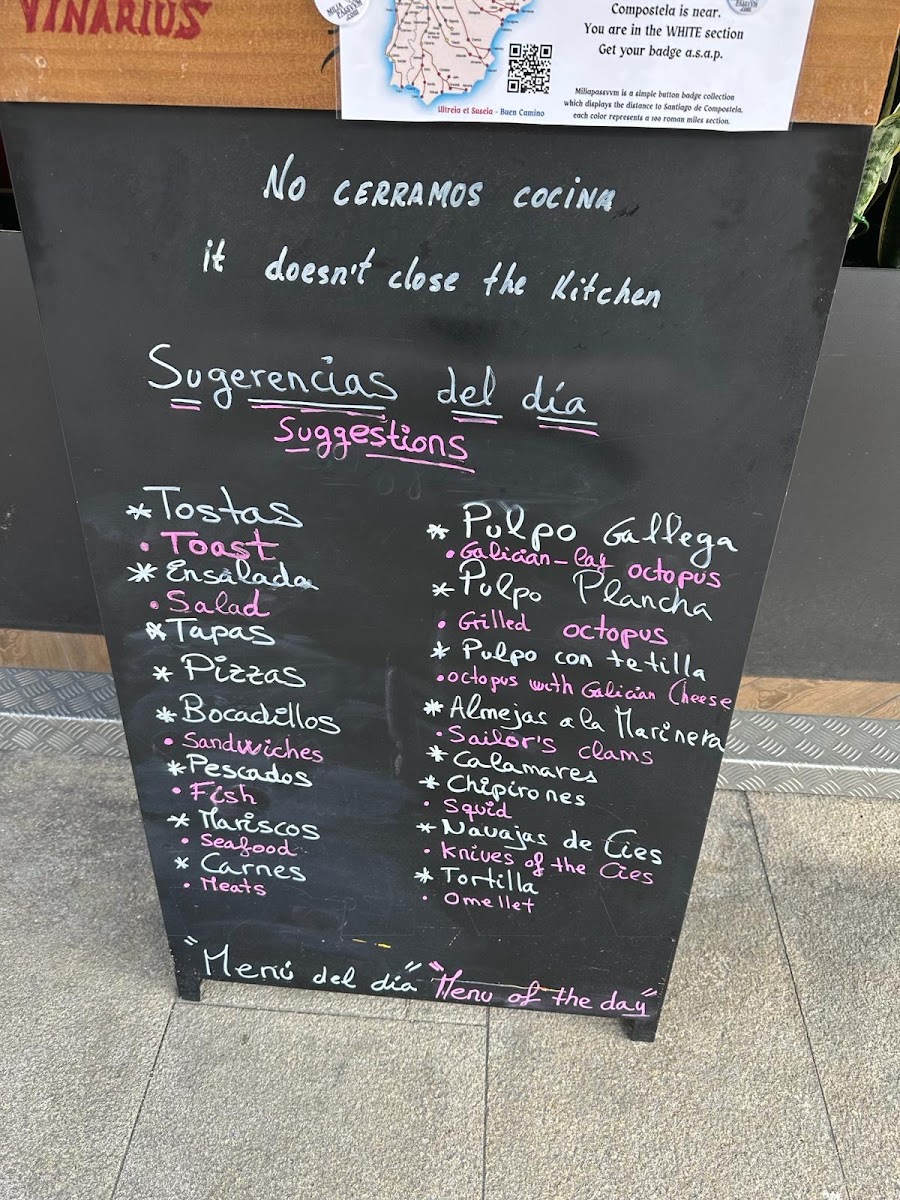 VINARIUS
Compostela is near.
You are in the WHITE section
Get your badge a.s.a.p.
Miliapassvvm is a simple button badge collection
which displays the distance to Santiago de Compostela,
each color represents a 100 roman miles section.
Ultreia et Suseia - Buen Camino
No CERRAMOS COCINA
it doesn't close the Kitchen
Sugerencias del día
Suggestions
*Tostas
• Toast
*Ensalada
• Salad
*Tapas
* Pizzas
*Bocadillos
• Sandwiches
*Pescados
• Fish
* Mariscos
• Seafood
* Carnes
• Meats
* Pulpo Gallega
• Galician-lay octopus
* Pulpo Plancha
• Grilled octopus
* Pulpo con tetilla
• octopus with Galician Cheese
* Almejas a la Marinera
• Sailor's clams
* Calamares
* Chipirones
• Squid
* Navajas de Cies
• Knives of the Cies
* Tortilla
• Omellet
"Menú del día" "Menu of the day"